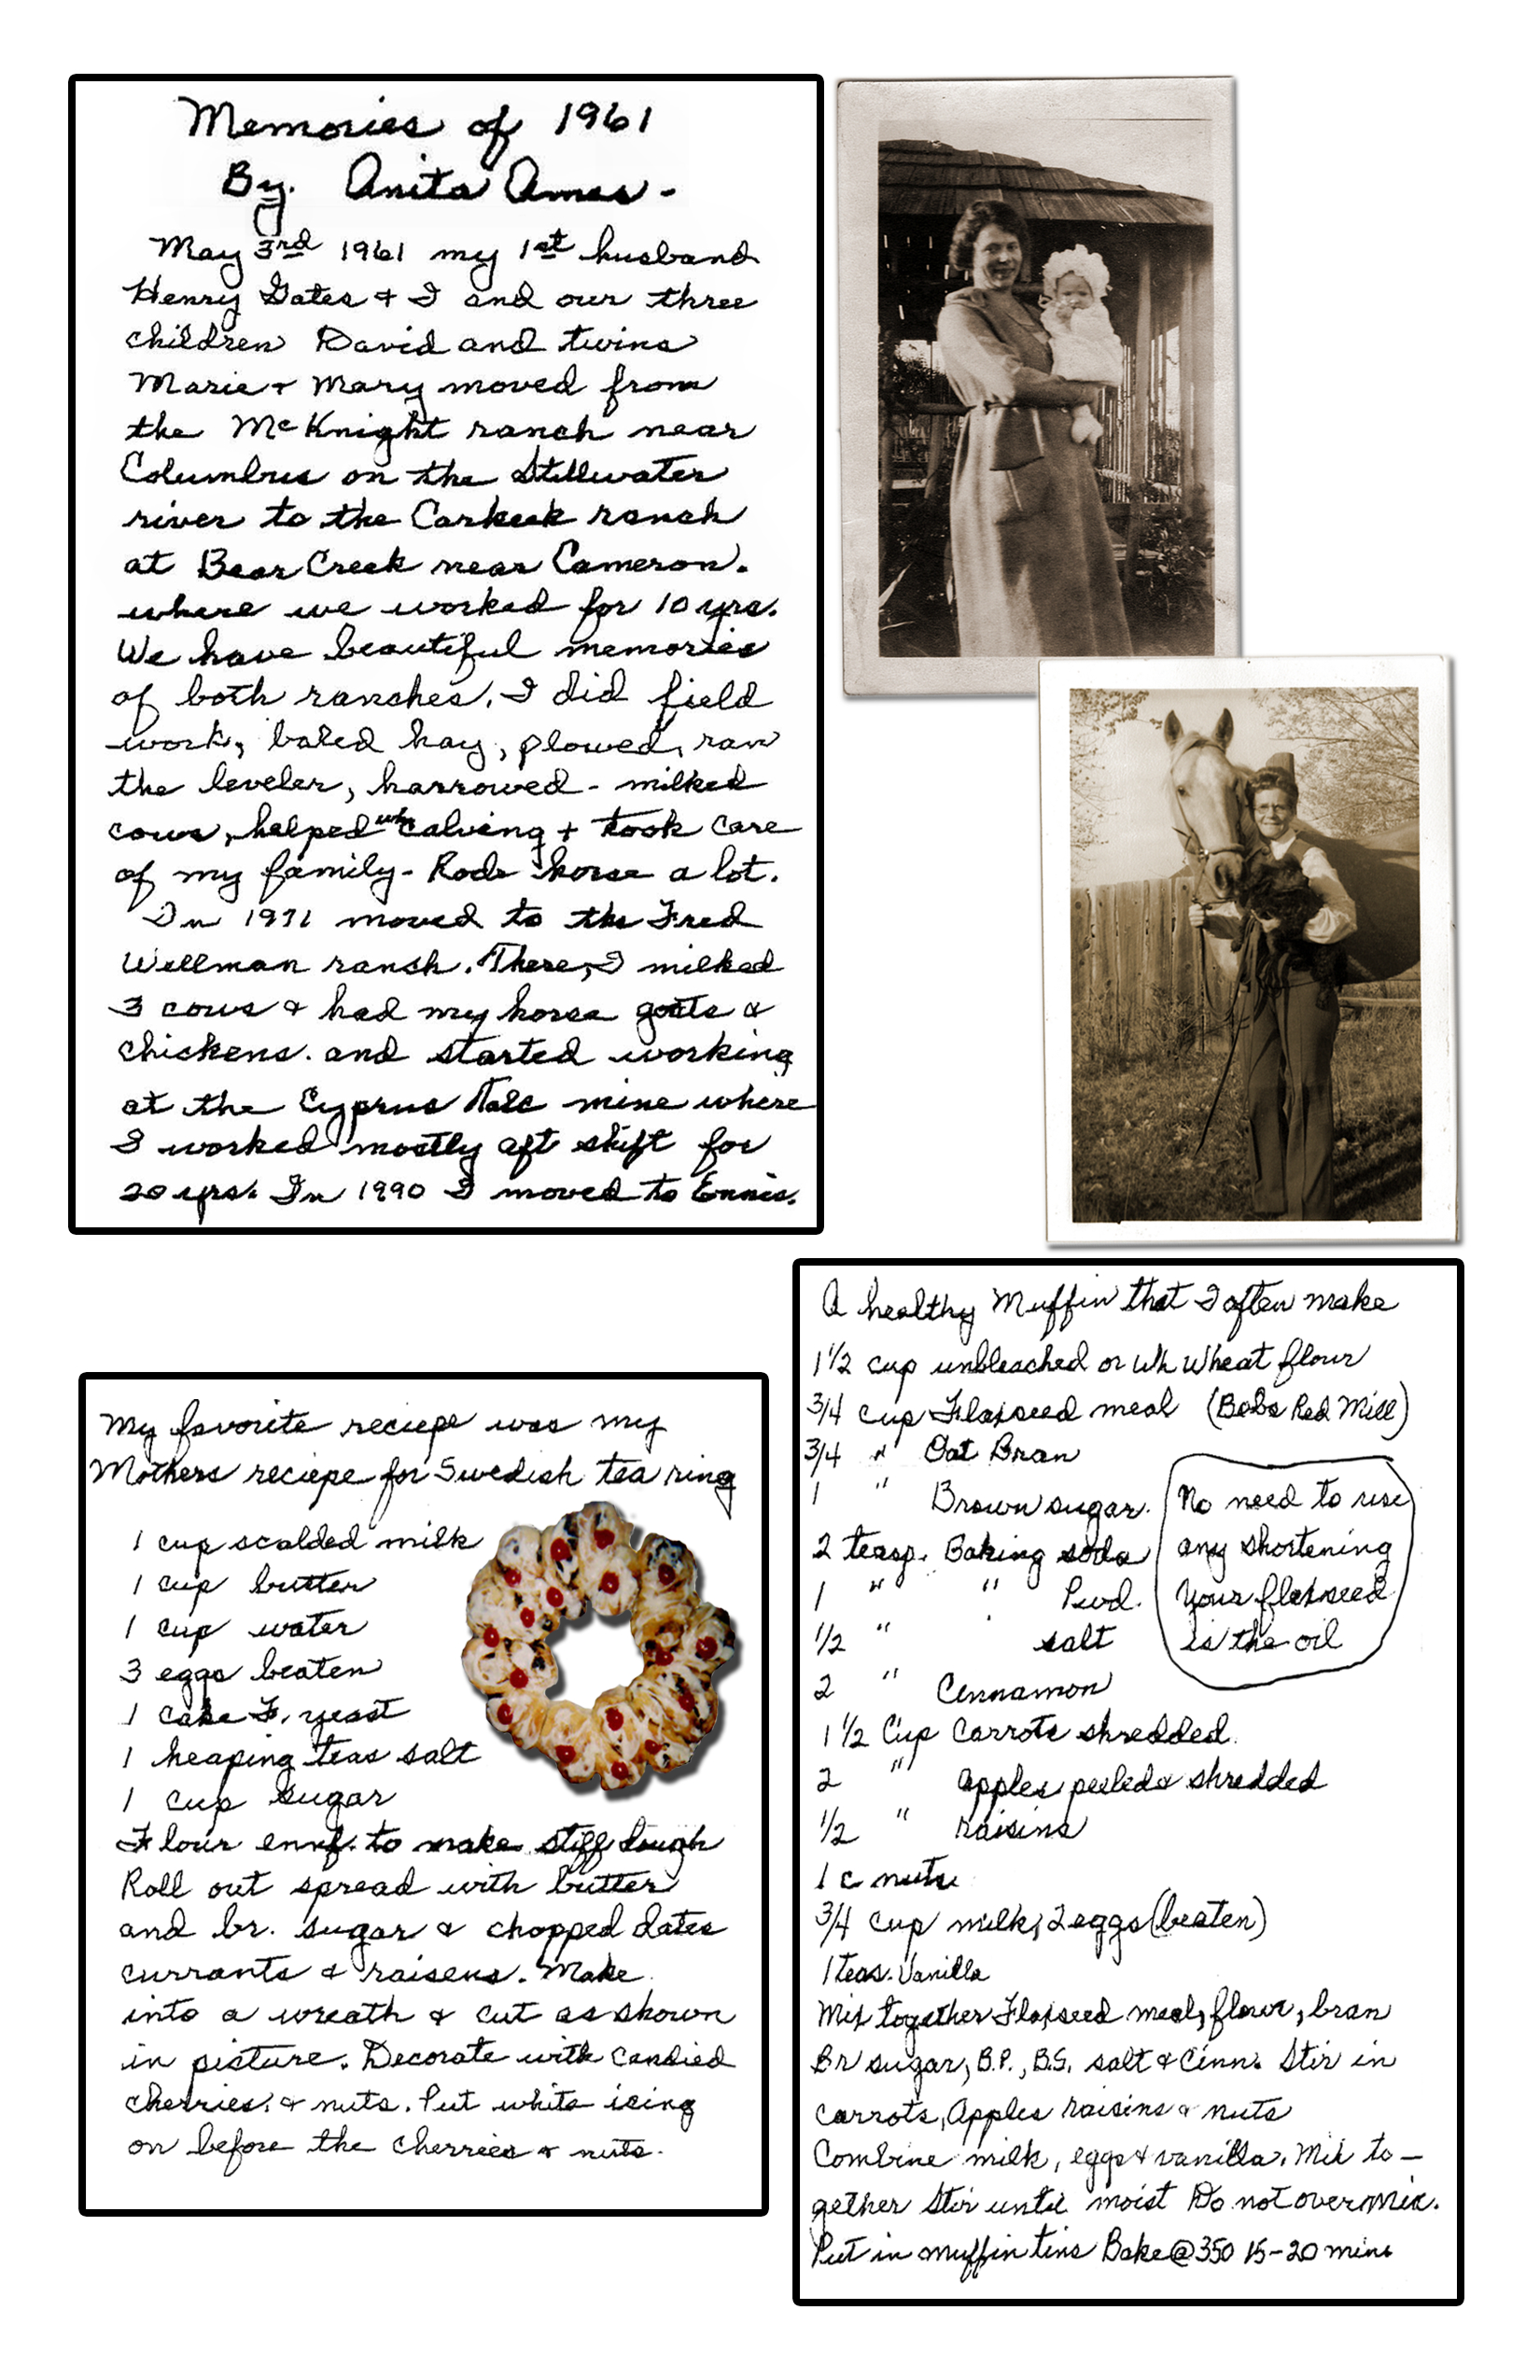 Memories of 1961
By. Anita Ames -
May 3rd 1961 my 1st husband
Henry Gates & I and our three
children David and twins
Marie & Mary moved from
the McKnight ranch near
Columbus on the Stillwater
river to the Carkeek ranch
at Bear Creek near Cameron.
where we worked for 10 yrs.
We have beautiful memories
of both ranches. I did field
work, baled hay, plowed, ran
the leveler, harrowed - milked
cows, helped with calving & took care
of my family - Rode horse a lot.
In 1971 moved to the Fred
Wellman ranch. There, I milked
3 cows & had my horse goats &
chickens. and started working
at the Cyprus Talc mine where
I worked mostly aft shift for
20 yrs. In 1990 I moved to Ennis.
My favorite reciepe was my
Mothers reciepe for Swedish tea ring
1 cup scalded milk
1 cup butter
1 cup water
3 eggs beaten
1 cake F. yeast
1 heaping teas salt
1 cup sugar
Flour enuf. to make stiff dough
Roll out spread with butter
and br. sugar & chopped dates
currants & raisens. Make
into a wreath & cut as shown
in picture. Decorate with candied
cherries. & nuts. Put white icing
on before the cherries & nuts.
A healthy Muffin that I often make
1 1/2 cup unbleached or Wh Wheat flour
3/4 cup Flaxseed meal (Bobs Red Mill)
3/4 " Oat Bran
1 " Brown sugar.
2 teasp. Baking soda
1 " " Pwd.
1/2 " salt
2 " Cinnamon
No need to use
any shortening
Your flaxseed
is the oil
1 1/2 Cup Carrots shredded
2 " apples peeled & shredded
1/2 " raisins
1 c nuts
3/4 cup milk, 2 eggs (beaten)
1 teas. Vanilla
Mix together Flaxseed meal, flour, bran
Br sugar, B.P., B.S. salt & Cinn. Stir in
carrots, Apples raisins & nuts
Combine milk, eggs & vanilla. Mix to-
gether Stir until moist Do not overmix.
Put in muffin tins Bake @ 350 15-20 mins